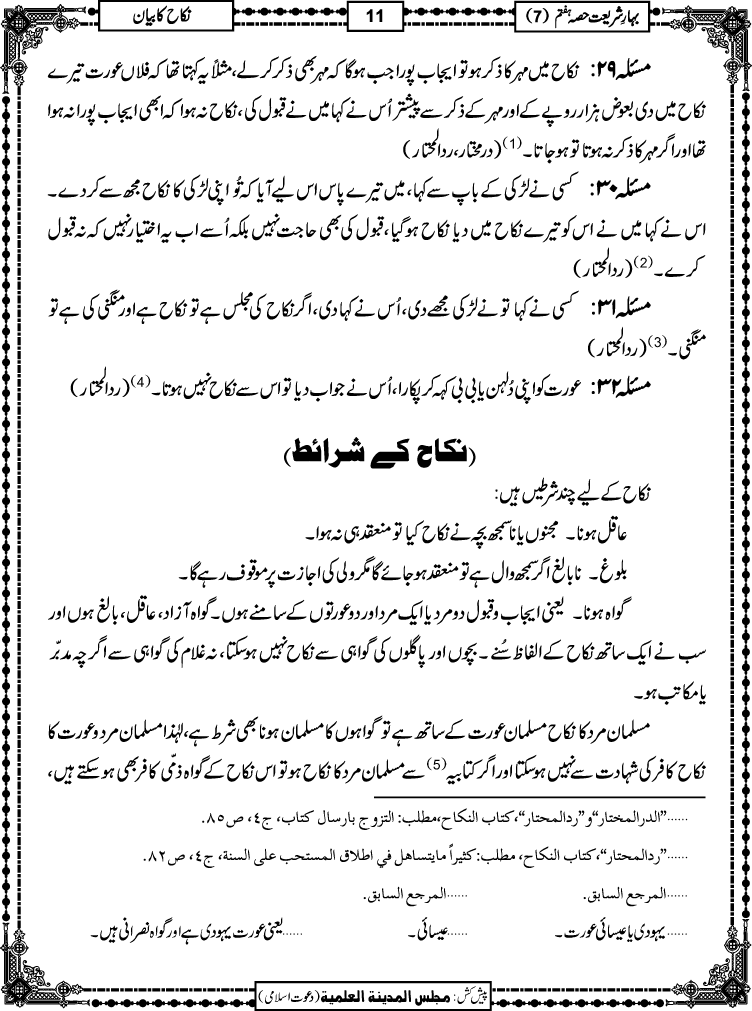 بہارِ شریعت حصہ ہفتم (7)
11
نکاح کا بیان
مسئلہ ۲۹: نکاح میں مہر کا ذکر ہو تو ایجاب پورا جب ہوگا کہ مہر بھی ذکر کر لے، مثلاً یہ کہتا تھا کہ فلاں عورت تیرے
نکاح میں دی بعوض ہزار روپے کے اور مہر کے ذکر سے پیشتر اُس نے کہا میں نے قبول کی، نکاح نہ ہوا کہ ابھی ایجاب پورا نہ ہوا
تھا اور اگر مہر کا ذکر نہ ہوتا تو ہو جاتا۔ (1) (درمختار، ردالمحتار)
مسئلہ ۳۰: کسی نے لڑکی کے باپ سے کہا، میں تیرے پاس اس لیے آیا کہ تُو اپنی لڑکی کا نکاح مجھ سے کر دے۔
اس نے کہا میں نے اس کو تیرے نکاح میں دیا نکاح ہوگیا، قبول کی بھی حاجت نہیں بلکہ اُسے اب یہ اختیار نہیں کہ نہ قبول
کرے۔ (2) (ردالمحتار)
مسئلہ ۳۱: کسی نے کہا تو نے لڑکی مجھے دی، اُس نے کہا دی، اگر نکاح کی مجلس ہے تو نکاح ہے اور منگنی کی ہے تو
منگنی۔ (3) (ردالمحتار)
مسئلہ ۳۲: عورت کو اپنی دُلہن یا بی بی کہہ کر پکارا، اُس نے جواب دیا تو اس سے نکاح نہیں ہوتا۔ (4) (ردالمحتار)
(نکاح کے شرائط)
نکاح کے لیے چند شرطیں ہیں:
عاقل ہونا۔ مجنوں یا ناسمجھ بچہ نے نکاح کیا تو منعقد ہی نہ ہوا۔
بلوغ۔ نابالغ اگر سمجھ وال ہے تو منعقد ہو جائے گا مگر ولی کی اجازت پر موقوف رہے گا۔
گواہ ہونا۔ یعنی ایجاب وقبول دو مرد یا ایک مرد اور دو عورتوں کے سامنے ہوں۔ گواہ آزاد، عاقل، بالغ ہوں اور
سب نے ایک ساتھ نکاح کے الفاظ سُنے۔ بچوں اور پاگلوں کی گواہی سے نکاح نہیں ہوسکتا، نہ غلام کی گواہی سے اگرچہ مدبّر
یا مکاتب ہو۔
مسلمان مرد کا نکاح مسلمان عورت کے ساتھ ہے تو گواہوں کا مسلمان ہونا بھی شرط ہے، لہٰذا مسلمان مرد و عورت کا
نکاح کافر کی شہادت سے نہیں ہوسکتا اور اگر کتابیہ (5) سے مسلمان مرد کا نکاح ہو تو اس نکاح کے گواہ ذمّی کافر بھی ہوسکتے ہیں،
......"الدرالمختار" و "ردالمحتار"، کتاب النکاح، مطلب: التزوج بارسال کتاب، ج٤، ص٨٥.
......"ردالمحتار"، کتاب النکاح، مطلب: کثیراً مایتساهل في اطلاق المستحب علی السنة، ج٤، ص٨٢.
......المرجع السابق. ......المرجع السابق.
......یہودی یا عیسائی عورت۔ ......عیسائی۔ ......یعنی عورت یہودی ہے اور گواہ نصرانی ہیں۔
پیش کش: مجلس المدینة العلمیة (دعوت اسلامی)